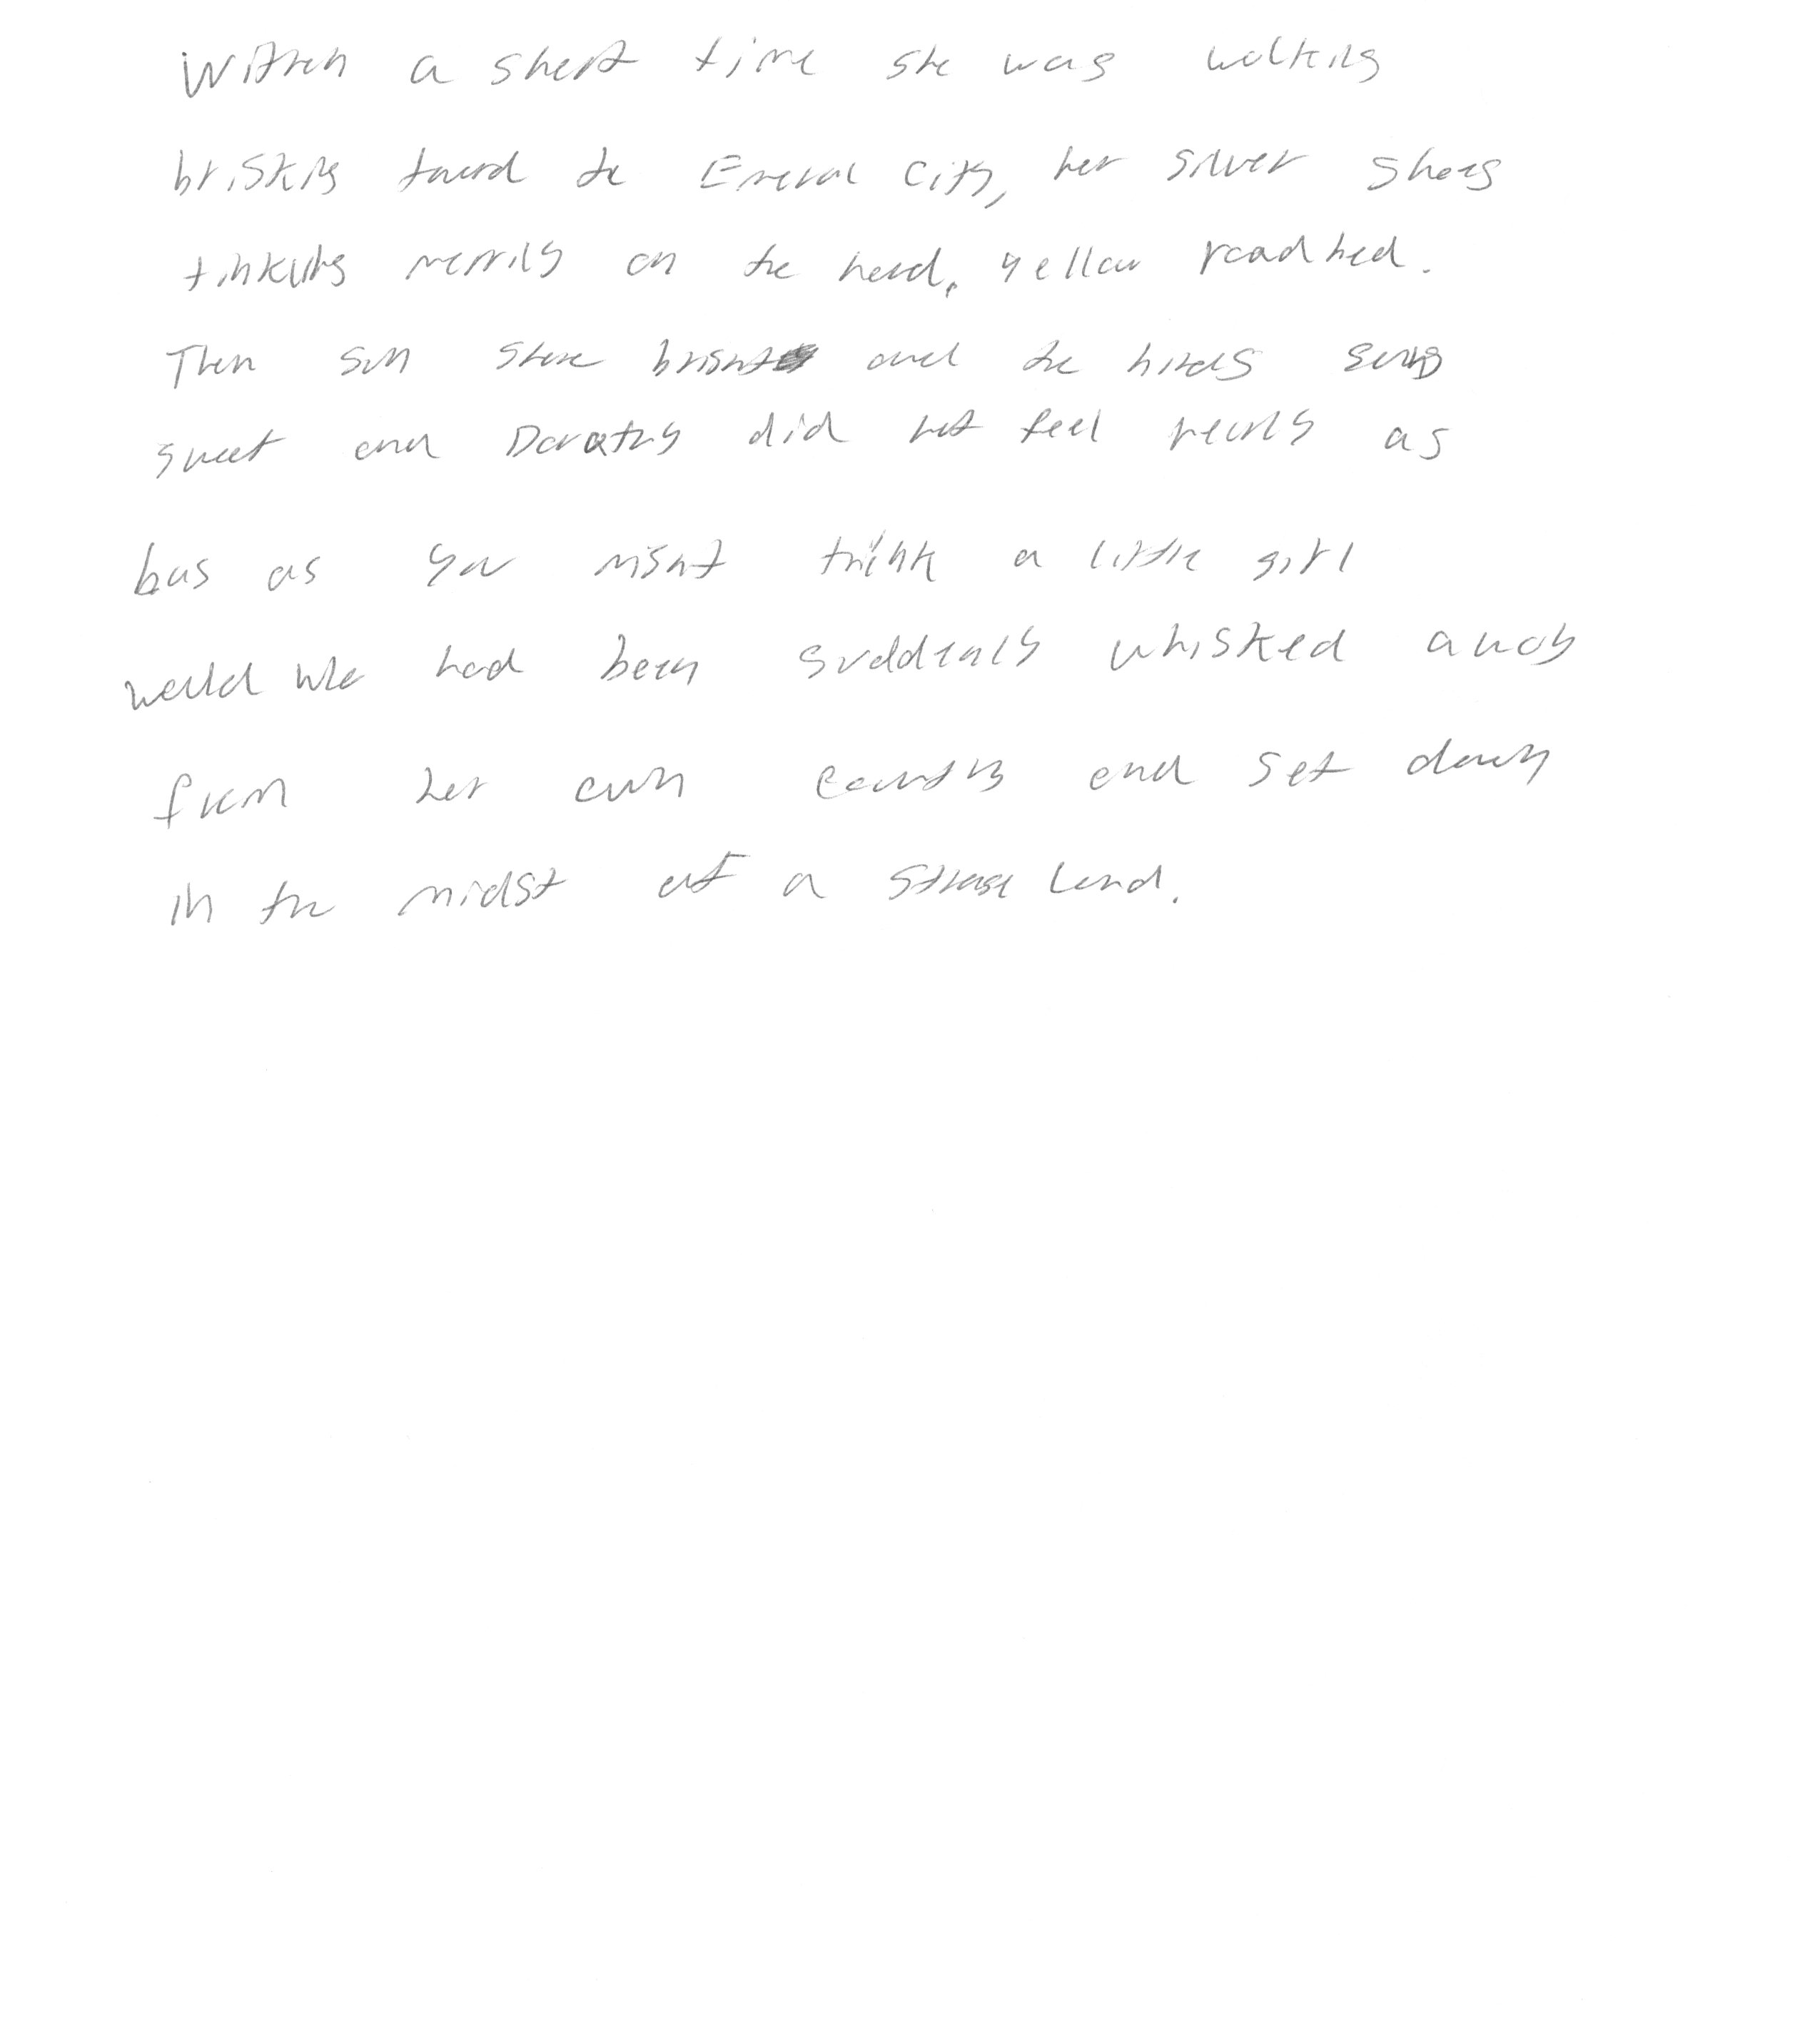 Within a short time she was walking
briskly toward the Emerald City, her silver shoes
tinkling merrily on the hard, yellow roadbed.
Then sun shone bright and the birds sung
sweet and Dorothy did not feel nearly as
bad as you might think a little girl
would who had been suddenly whisked away
from her own country and set down
in the midst of a strange land.